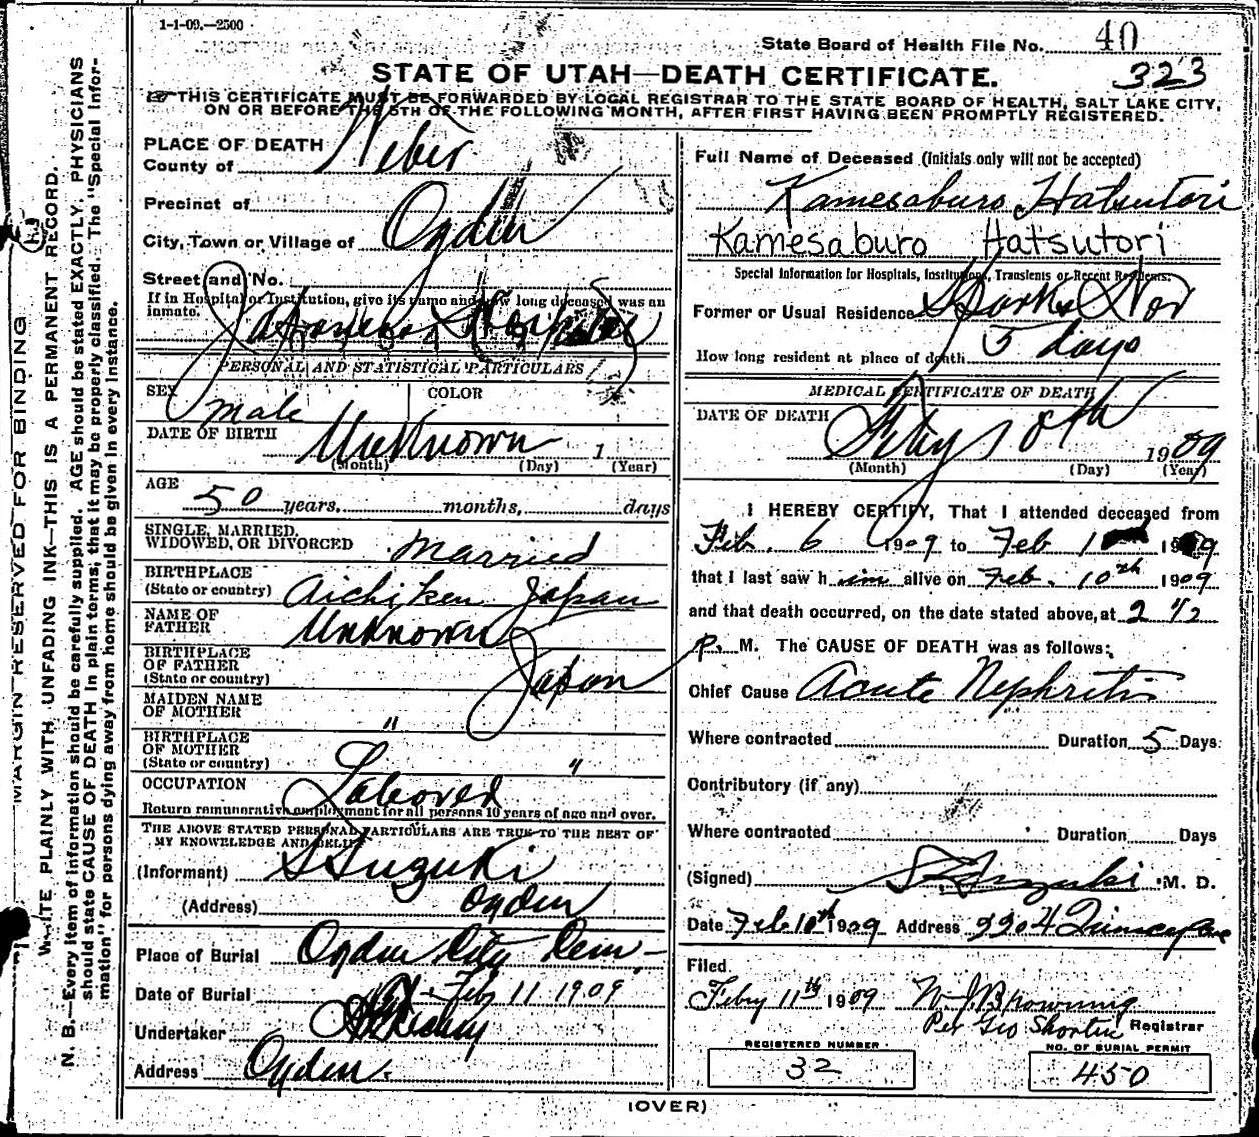 1-1-09.—2500
State Board of Health File No. 40
323
STATE OF UTAH—DEATH CERTIFICATE.
THIS CERTIFICATE MUST BE FORWARDED BY LOCAL REGISTRAR TO THE STATE BOARD OF HEALTH, SALT LAKE CITY,
ON OR BEFORE THE 5TH OF THE FOLLOWING MONTH, AFTER FIRST HAVING BEEN PROMPTLY REGISTERED.
MARGIN RESERVED FOR BINDING
WRITE PLAINLY WITH UNFADING INK—THIS IS A PERMANENT RECORD.
N. B.—Every item of information should be carefully supplied. AGE should be stated EXACTLY. PHYSICIANS
should state CAUSE OF DEATH in plain terms, that it may be properly classified. The "Special Infor-
mation" for persons dying away from home should be given in every instance.
PLACE OF DEATH
County of Weber
Precinct of
City, Town or Village of Ogden
Street and No.
If in Hospital or Institution, give its name and how long deceased was an
inmate. Japanese Hospital
PERSONAL AND STATISTICAL PARTICULARS
SEX male COLOR
DATE OF BIRTH Unknown 1
(Month) (Day) (Year)
AGE
50 years, months, days
SINGLE, MARRIED,
WIDOWED, OR DIVORCED married
BIRTHPLACE
(State or country) Aichi ken Japan
NAME OF
FATHER Unknown
BIRTHPLACE
OF FATHER
(State or country) Japan
MAIDEN NAME
OF MOTHER "
BIRTHPLACE
OF MOTHER
(State or country) "
OCCUPATION Laborer
Return remunerative employment for all persons 10 years of age and over.
THE ABOVE STATED PERSONAL PARTICULARS ARE TRUE TO THE BEST OF
MY KNOWLEDGE AND BELIEF
(Informant) S Suzuki
(Address) Ogden
Place of Burial Ogden City Cem-
Date of Burial Feb 11 1909
Undertaker
Address Ogden.
Full Name of Deceased (Initials only will not be accepted)
Kamesaburo Hatsutori
Kamesaburo Hatsutori
Special Information for Hospitals, Institutions, Transients or Recent Residents.
Former or Usual Residence Sparks Nev
How long resident at place of death 5 days
MEDICAL CERTIFICATE OF DEATH
DATE OF DEATH Feby 10th 1909
(Month) (Day) (Year)
I HEREBY CERTIFY, That I attended deceased from
Feb. 6 1909 to Feb 10 1909
that I last saw him alive on Feb. 10th 1909
and that death occurred, on the date stated above, at 2 1/2
P. M. The CAUSE OF DEATH was as follows:
Chief Cause Acute Nephritis
Where contracted Duration 5 Days
Contributory (if any)
Where contracted Duration Days
(Signed) S Suzuki M. D.
Date Feb 10th 1909 Address 2304 Quincy Ave
Filed
Febry 11th 1909 W J Browning
Per Geo Shorten Registrar
REGISTERED NUMBER
32
NO. OF BURIAL PERMIT
450
(OVER)